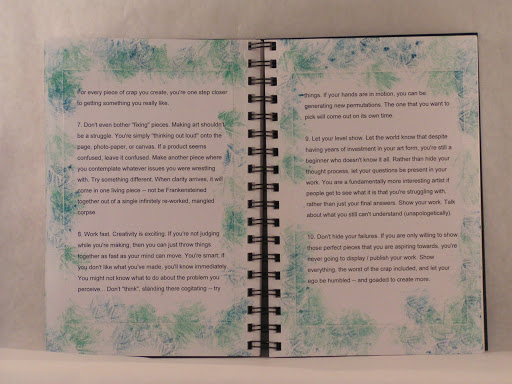 For every piece of crap you create, you're one step closer
to getting something you really like.
7. Don't even bother "fixing" pieces. Making art shouldn't
be a struggle. You're simply "thinking out loud" onto the
page, photo-paper, or canvas. If a product seems
confused, leave it confused. Make another piece where
you contemplate whatever issues you were wrestling
with. Try something different. When clarity arrives, it will
come in one living piece -- not be Frankensteined
together out of a single infinitely re-worked, mangled
corpse
8. Work fast. Creativity is exciting. If you're not judging
while you're making, then you can just throw things
together as fast as your mind can move. You're smart; if
you don't like what you've made, you'll know immediately.
You might not know what to do about the problem you
perceive... Don't "think", standing there cogitating -- try
things. If your hands are in motion, you can be
generating new permutations. The one that you want to
pick will come out on its own time.
9. Let your level show. Let the world know that despite
having years of investment in your art form, you're still a
beginner who doesn't know it all. Rather than hide your
thought process, let your questions be present in your
work. You are a fundamentally more interesting artist if
people get to see what it is that you're struggling with,
rather than just your final answers. Show your work. Talk
about what you still can't understand (unapologetically).
10. Don't hide your failures. If you are only willing to show
those perfect pieces that you are aspiring towards, you're
never going to display / publish your work. Show
everything, the worst of the crap included, and let your
ego be humbled -- and goaded to create more.